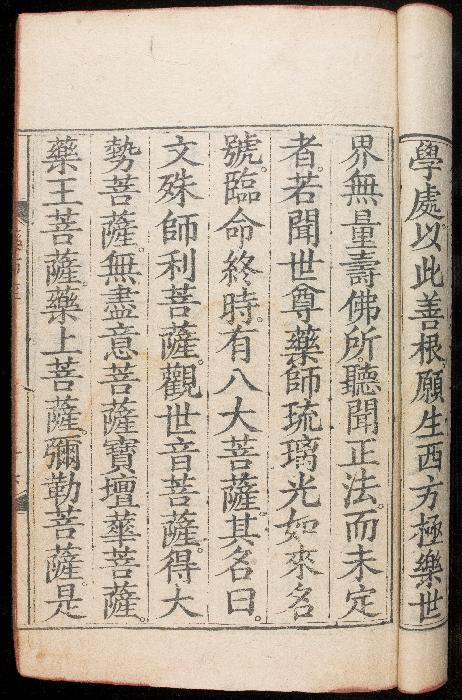 學處以此善根願生西方極樂世
界無量壽佛所。聽聞正法。而未定
者。若聞世尊藥師琉璃光如來名
號。臨命終時。有八大菩薩。其名曰。
文殊師利菩薩。觀世音菩薩。得大
勢菩薩。無盡意菩薩。寶壇華菩薩。
藥王菩薩。藥上菩薩。彌勒菩薩。是